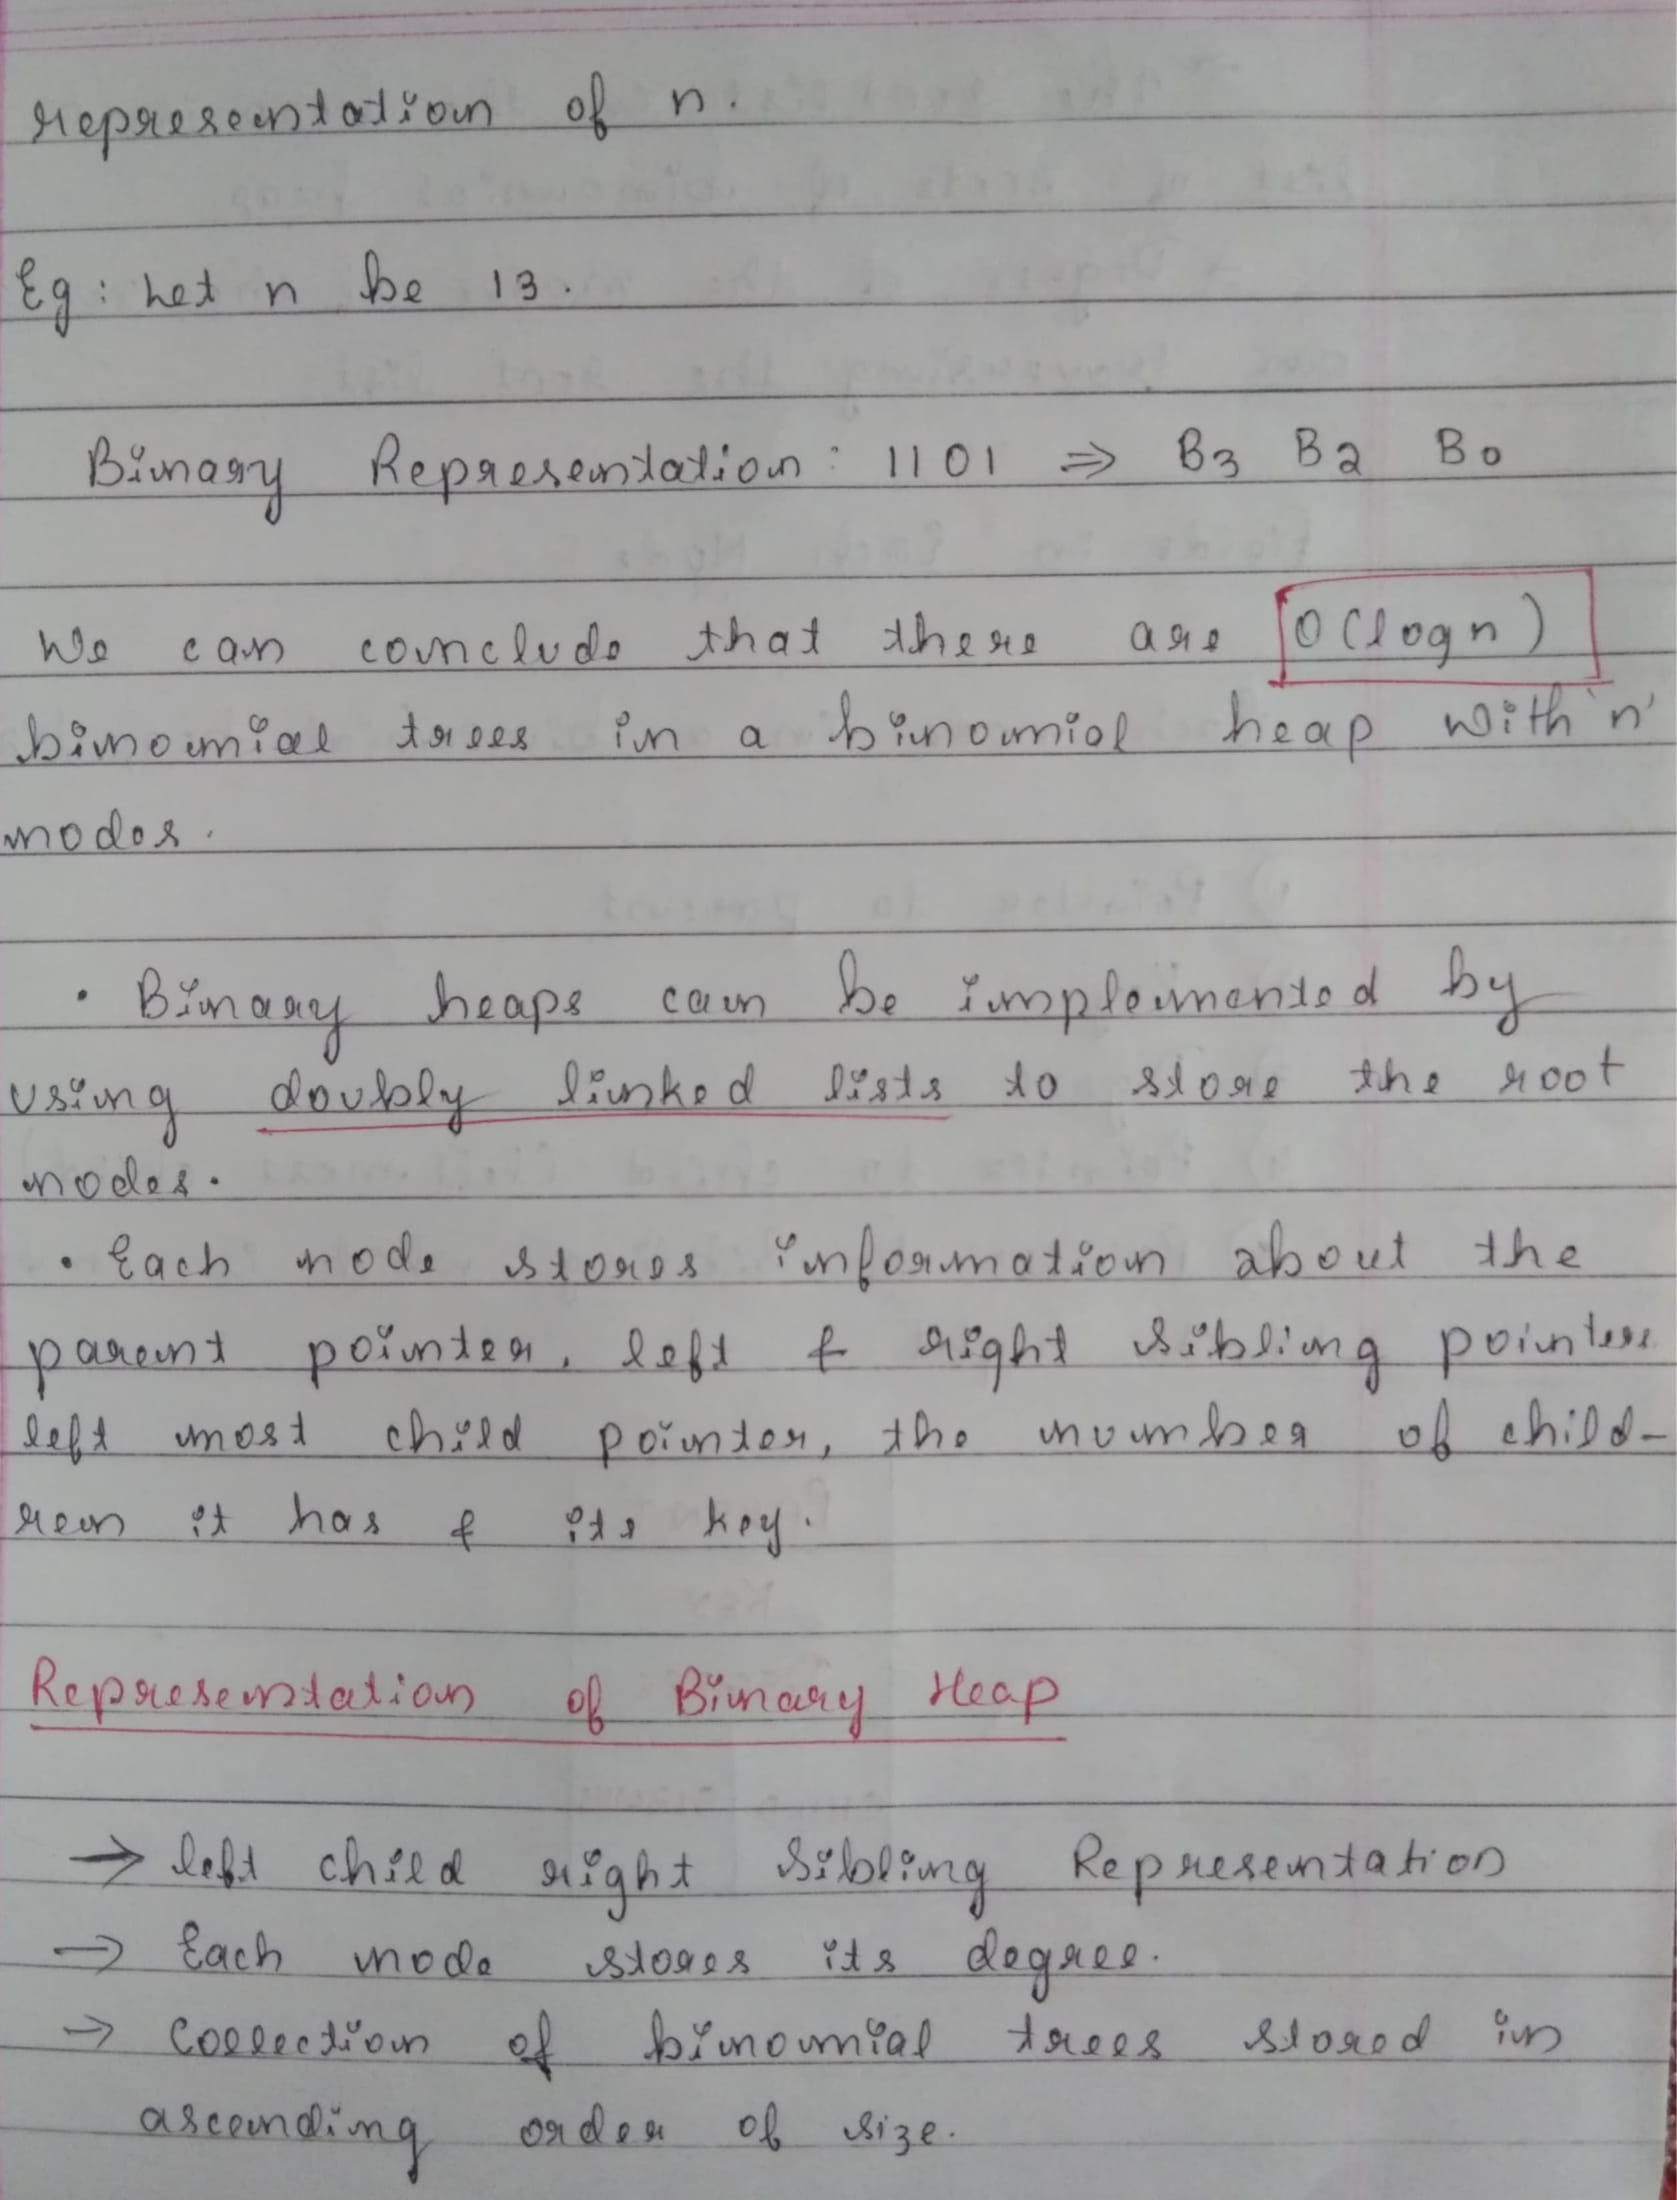 representation of n.
Eg: Let n be 13.
Binary Representation: 1101 ⇒ B3 B2 B0
We can conclude that there are O(logn)
binomial trees in a binomial heap with 'n'
nodes.
• Binary heaps can be implemented by
using doubly linked lists to store the root
nodes.
• Each node stores information about the
parent pointer, left & right sibling pointers
left most child pointer, the number of child-
ren it has & its key.
Representation of Binary Heap
→ left child right sibling Representation
→ Each node stores its degree.
→ Collection of binomial trees stored in
ascending order of size.